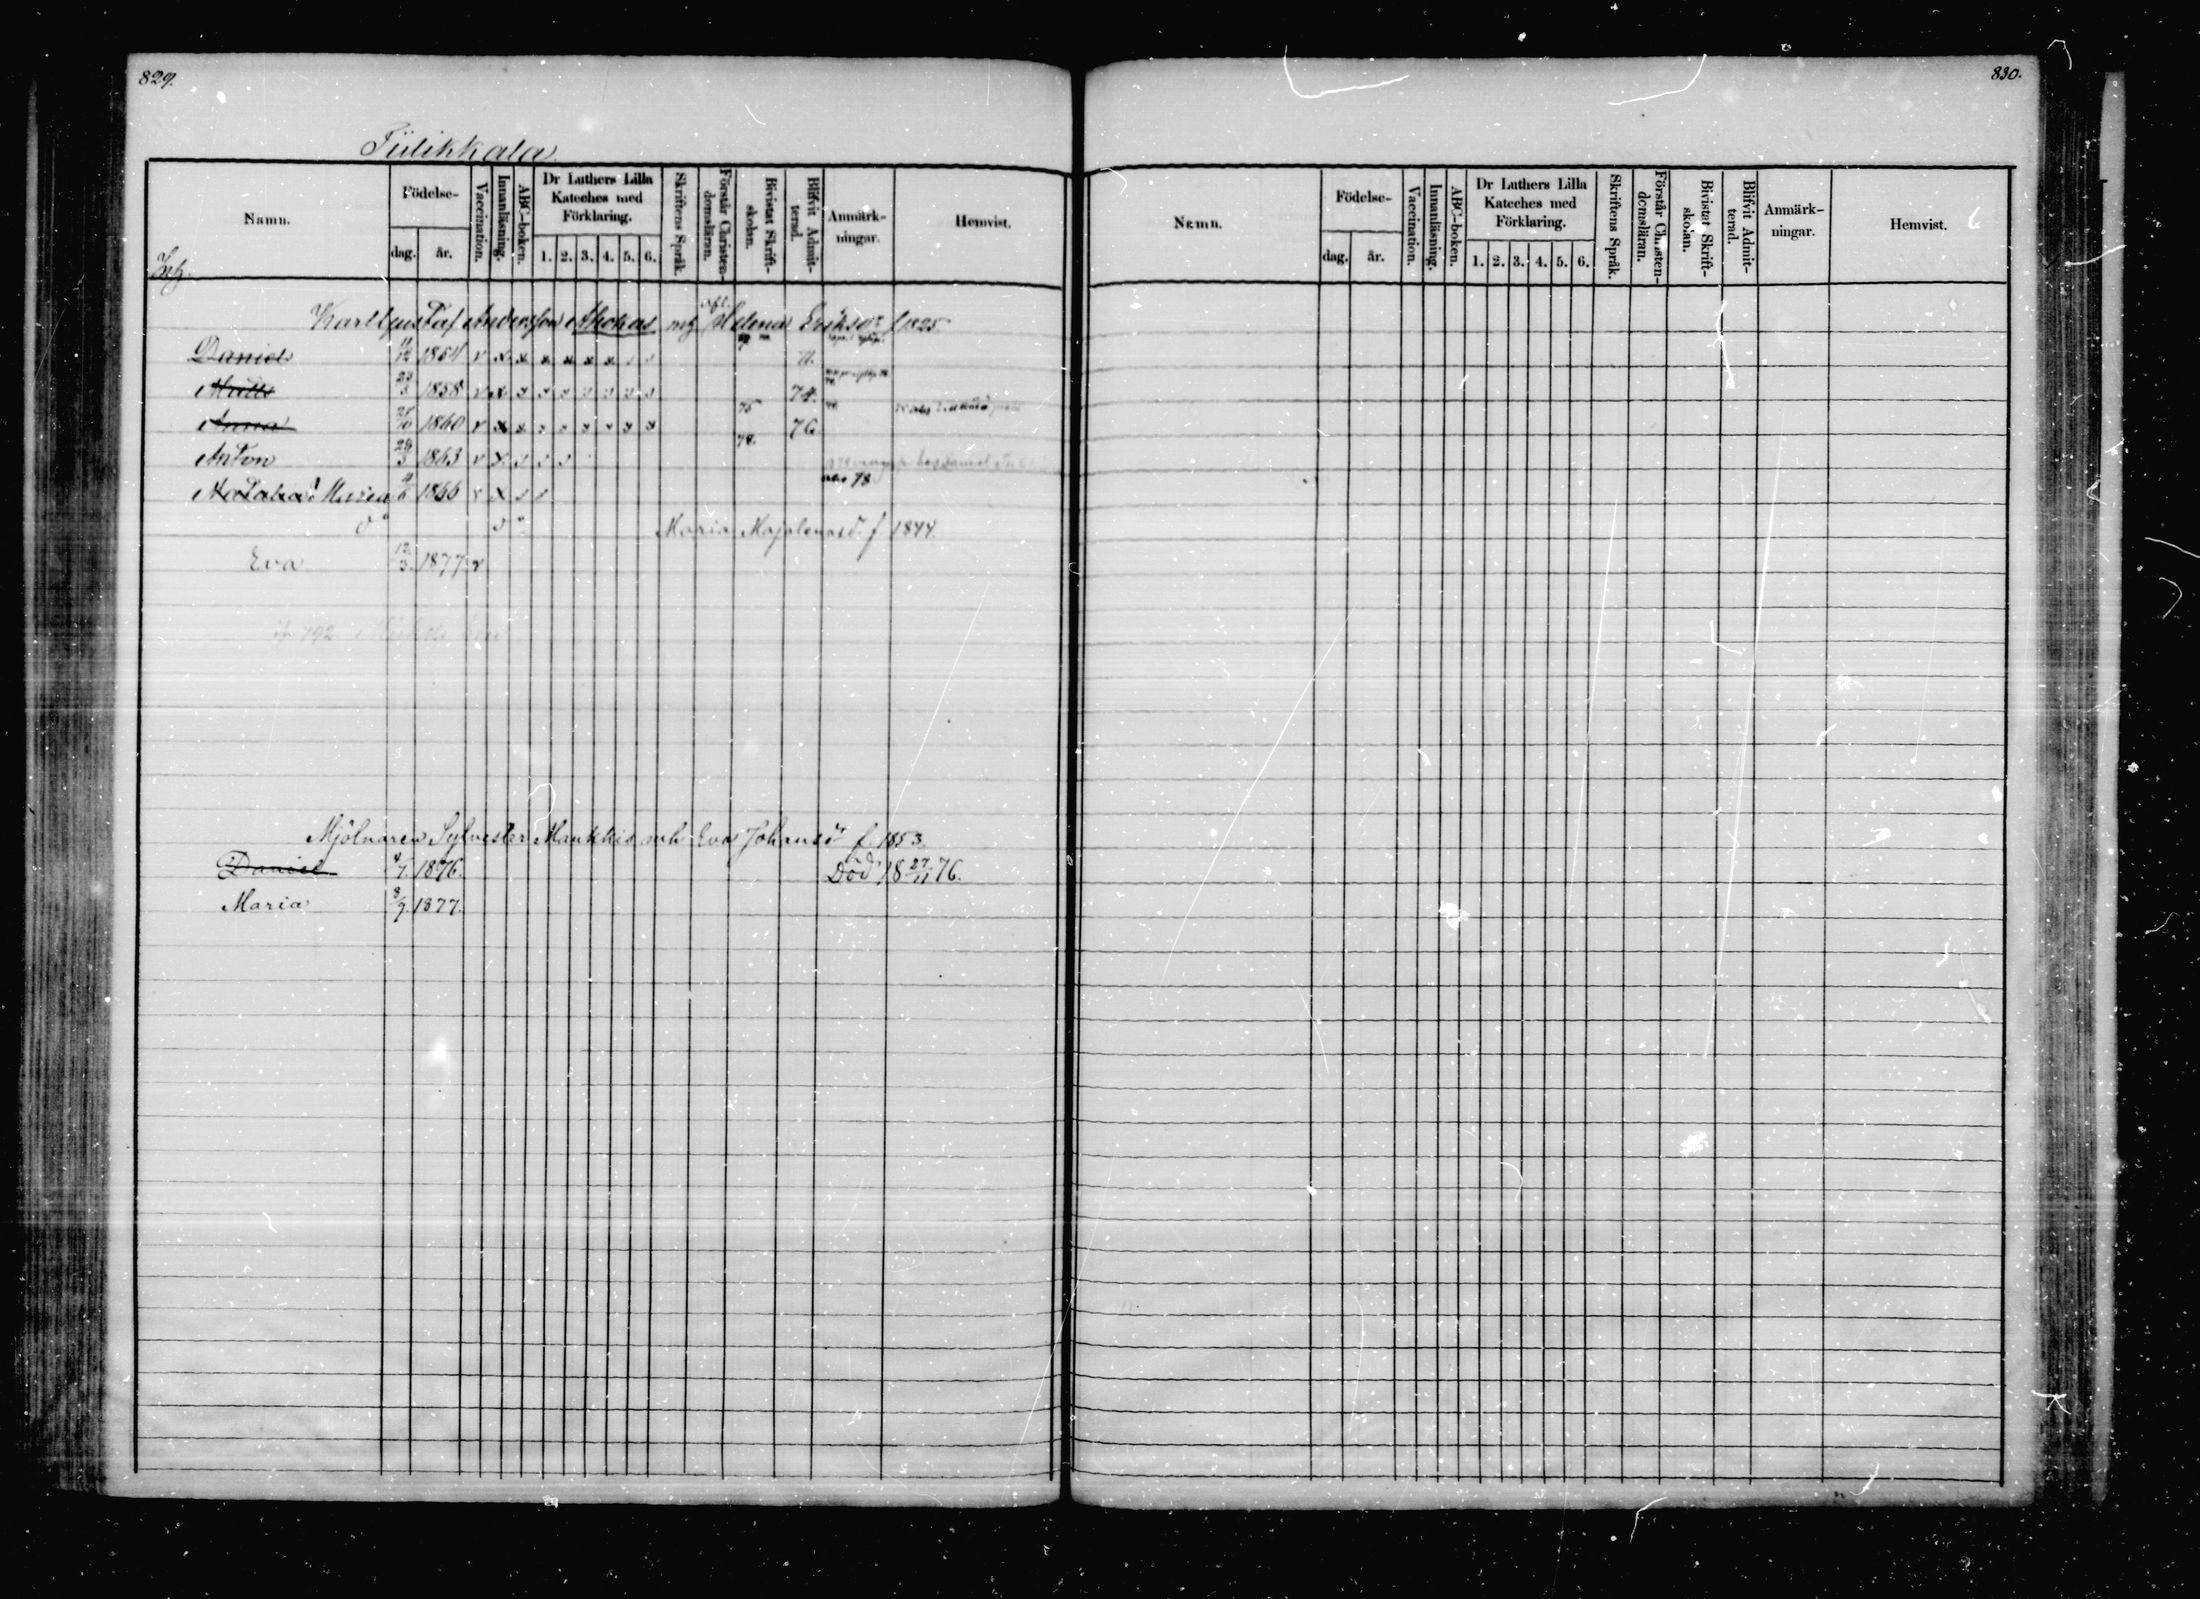 829.
Tiilikkala
Namn.
Födelse-
dag.
år.
Vaccination.
Innanläsning.
ABC-boken.
Dr Luthers Lilla Kateches med Förklaring.
1. 2. 3. 4. 5. 6.
Skriftens Språk.
Förstår Christendomsläran.
Bivistat Skriftskolan.
Blifvit Admitterad.
Anmärkningar.
Hemvist.
Inh.
Karl Gustaf Andersson Ahokas mh Helena Eriksdr f 1825
Daniel 11/12 1854 v x x x x x x
Matts 23/3 1858 v x 74.
Anna 1860 v x x 75 76
Anton 28/3 1863 v x 78.
Natalia Maria 4/6 1866 v x 78
do do Maria Majalenasdr f 1844.
Eva 12/3. 1877. v
792
Mjölnaren Sylvester Maukkis mh Eva Johansdr f. 1853.
Daniel 4/7. 1876. Död 18 27/11 76.
Maria 8/9. 1877.
830.
Namn.
Födelse-
dag.
år.
Vaccination.
Innanläsning.
ABC-boken.
Dr Luthers Lilla Kateches med Förklaring.
1. 2. 3. 4. 5. 6.
Skriftens Språk.
Förstår Christendomsläran.
Bivistat Skriftskolan.
Blifvit Admitterad.
Anmärkningar.
Hemvist.